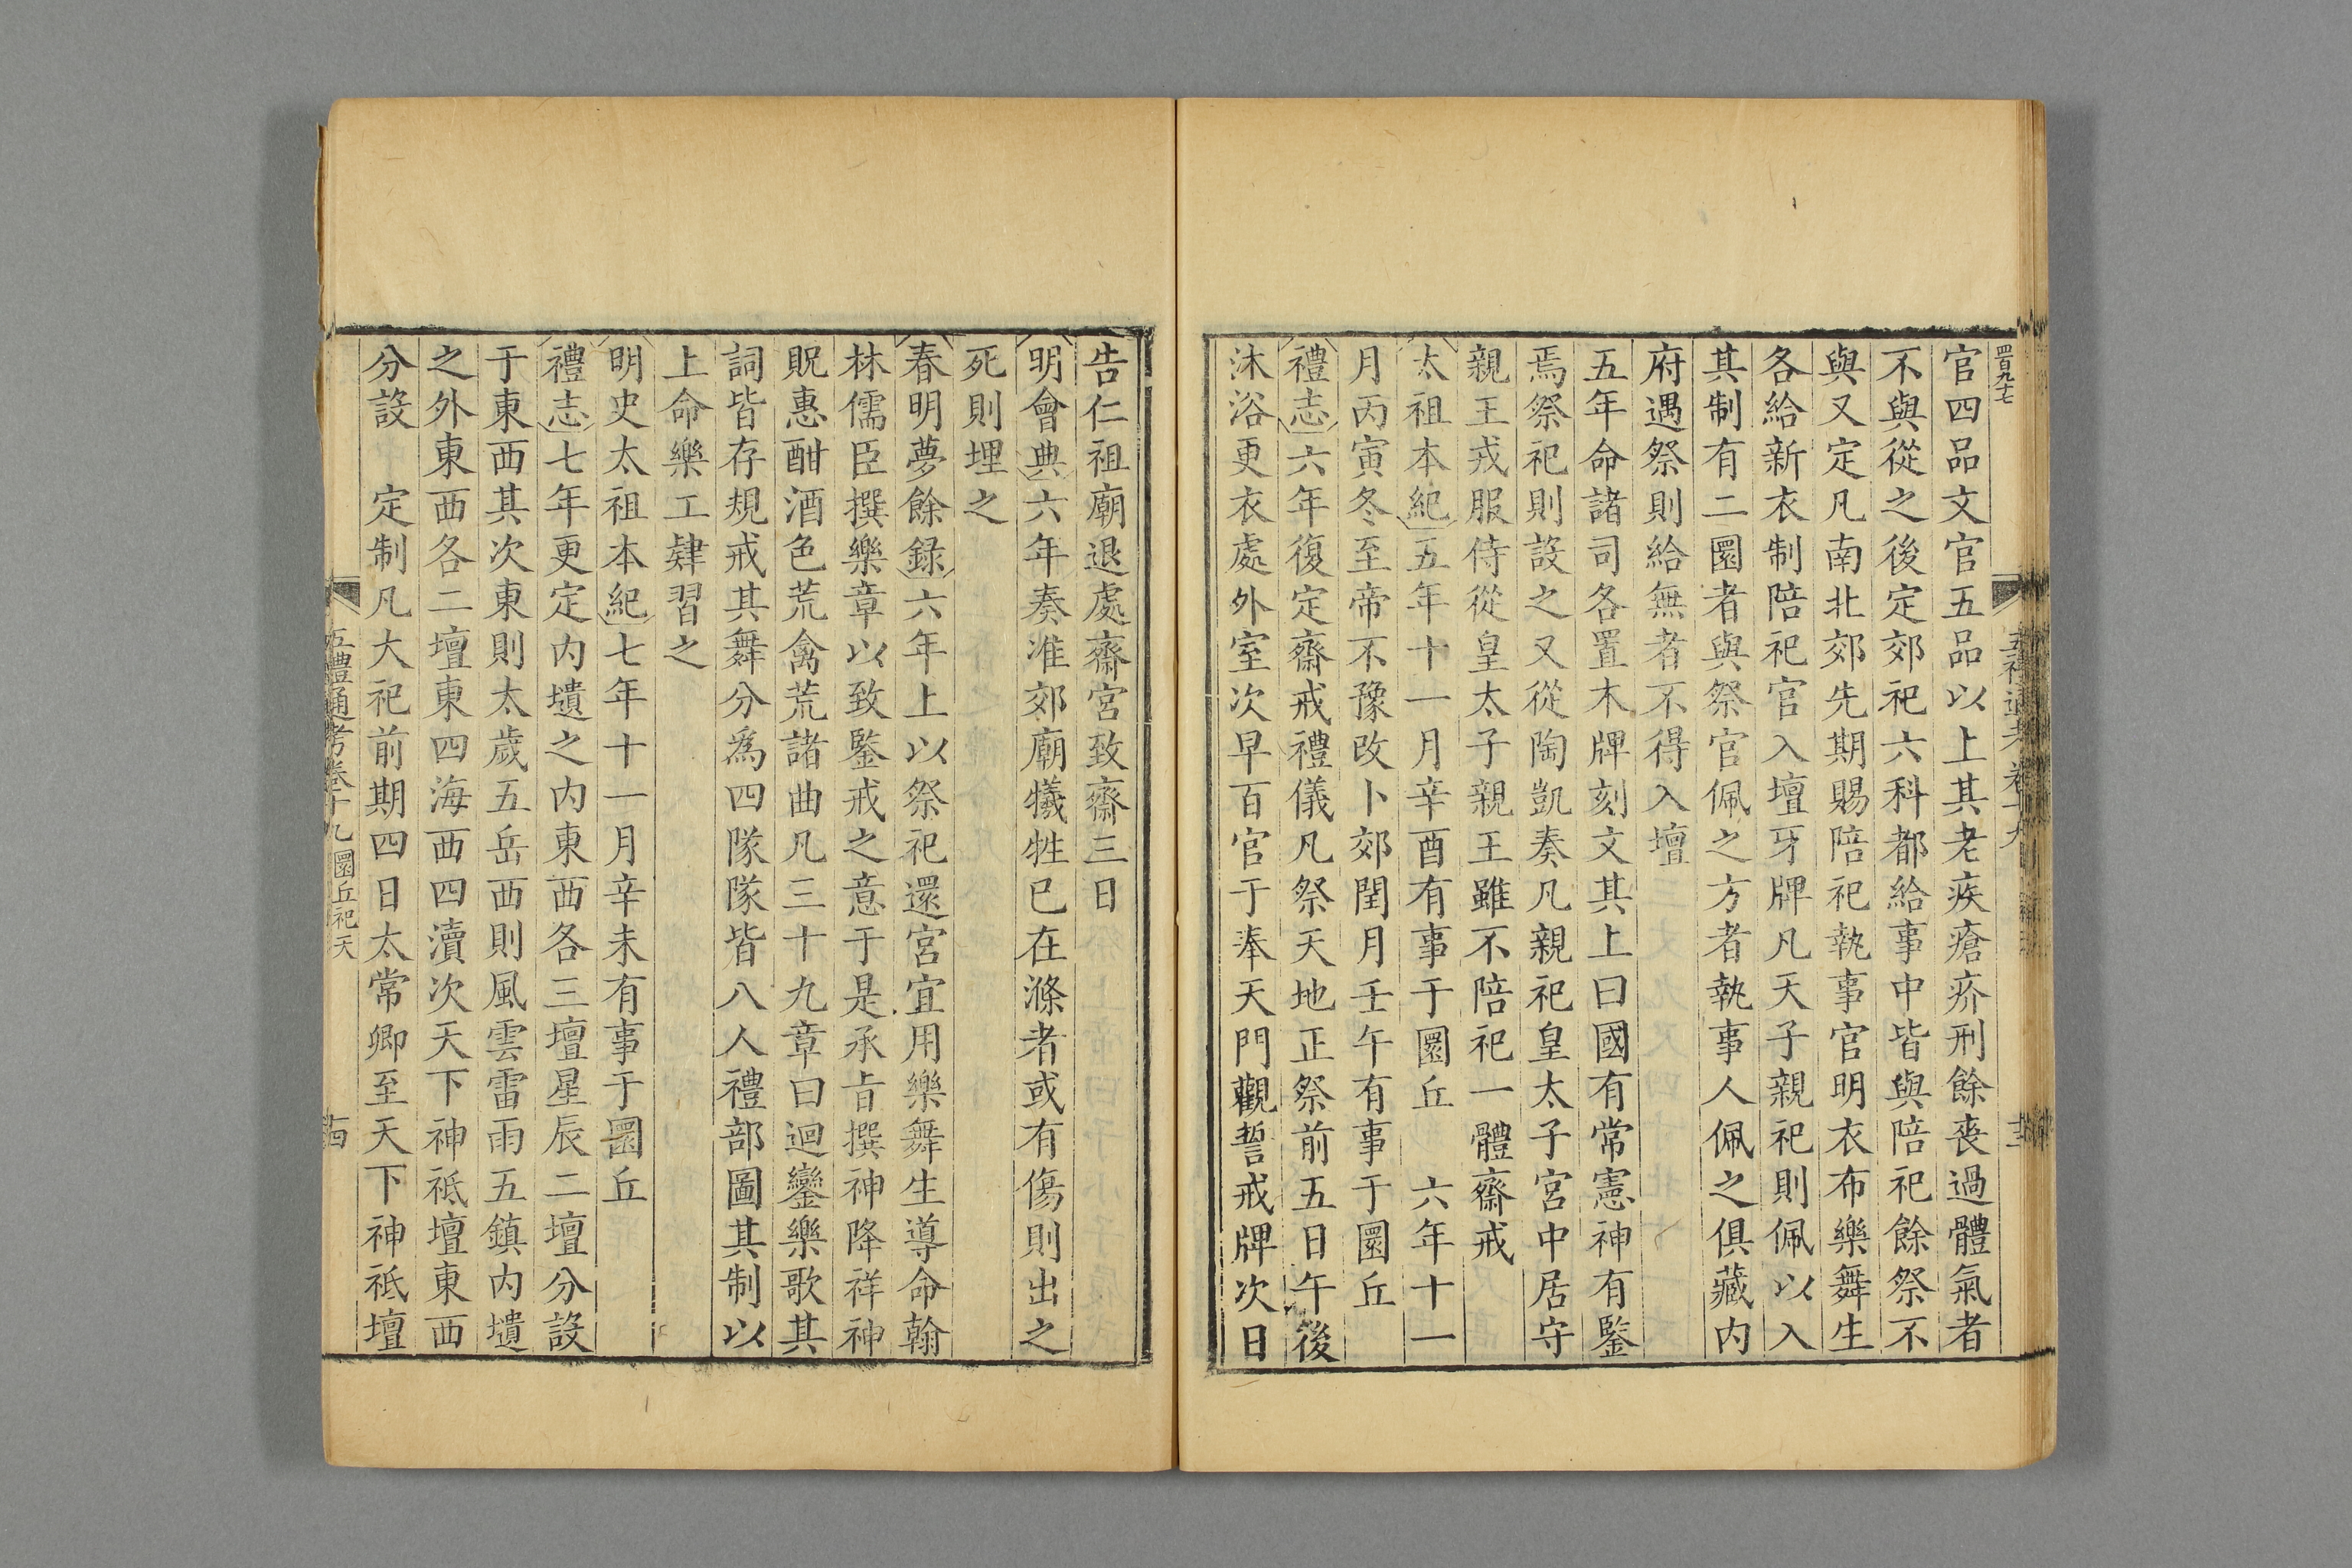 四百九七
官四品文官五品以上其老疾瘡疥刑餘喪過體氣者
不與從之後定郊祀六科都給事中皆與陪祀餘祭不
與又定凡南北郊先期賜陪祀執事官明衣布樂舞生
各給新衣制陪祀官入壇牙牌凡天子親祀則佩以入
其制有二圜者與祭官佩之方者執事人佩之俱藏内
府遇祭則給無者不得入壇
五年命諸司各置木牌刻文其上曰國有常憲神有鑒
焉祭祀則設之又從陶凱奏凡親祀皇太子宮中居守
親王戎服侍從皇太子親王雖不陪祀一體齋戒
太祖本紀五年十一月辛酉有事于圜丘 六年十一
月丙寅冬至帝不豫改卜郊閏月壬午有事于圜丘
禮志六年復定齋戒禮儀凡祭天地正祭前五日午後
沐浴更衣處外室次早百官于奉天門觀誓戒牌次日
告仁祖廟退處齋宮致齋三日
明會典六年奏准郊廟犧牲已在滌者或有傷則出之
死則埋之
春明夢餘録六年上以祭祀還宮宜用樂舞生導命翰
林儒臣撰樂章以致鑒戒之意于是承旨撰神降祥神
貺惠酣酒色荒禽荒諸曲凡三十九章曰迴鑾樂歌其
詞皆存規戒其舞分為四隊隊皆八人禮部圖其制以
上命樂工肄習之
明史太祖本紀七年十一月辛未有事于圜丘
禮志七年更定内壝之内東西各三壇星辰二壇分設
于東西其次東則太歲五岳西則風雲雷雨五鎮内壝
之外東西各二壇東四海西四瀆次天下神祇壇東西
分設 定制凡大祀前期四日太常卿至天下神祇壇
五禮通考卷十九 圜丘祀天 十四